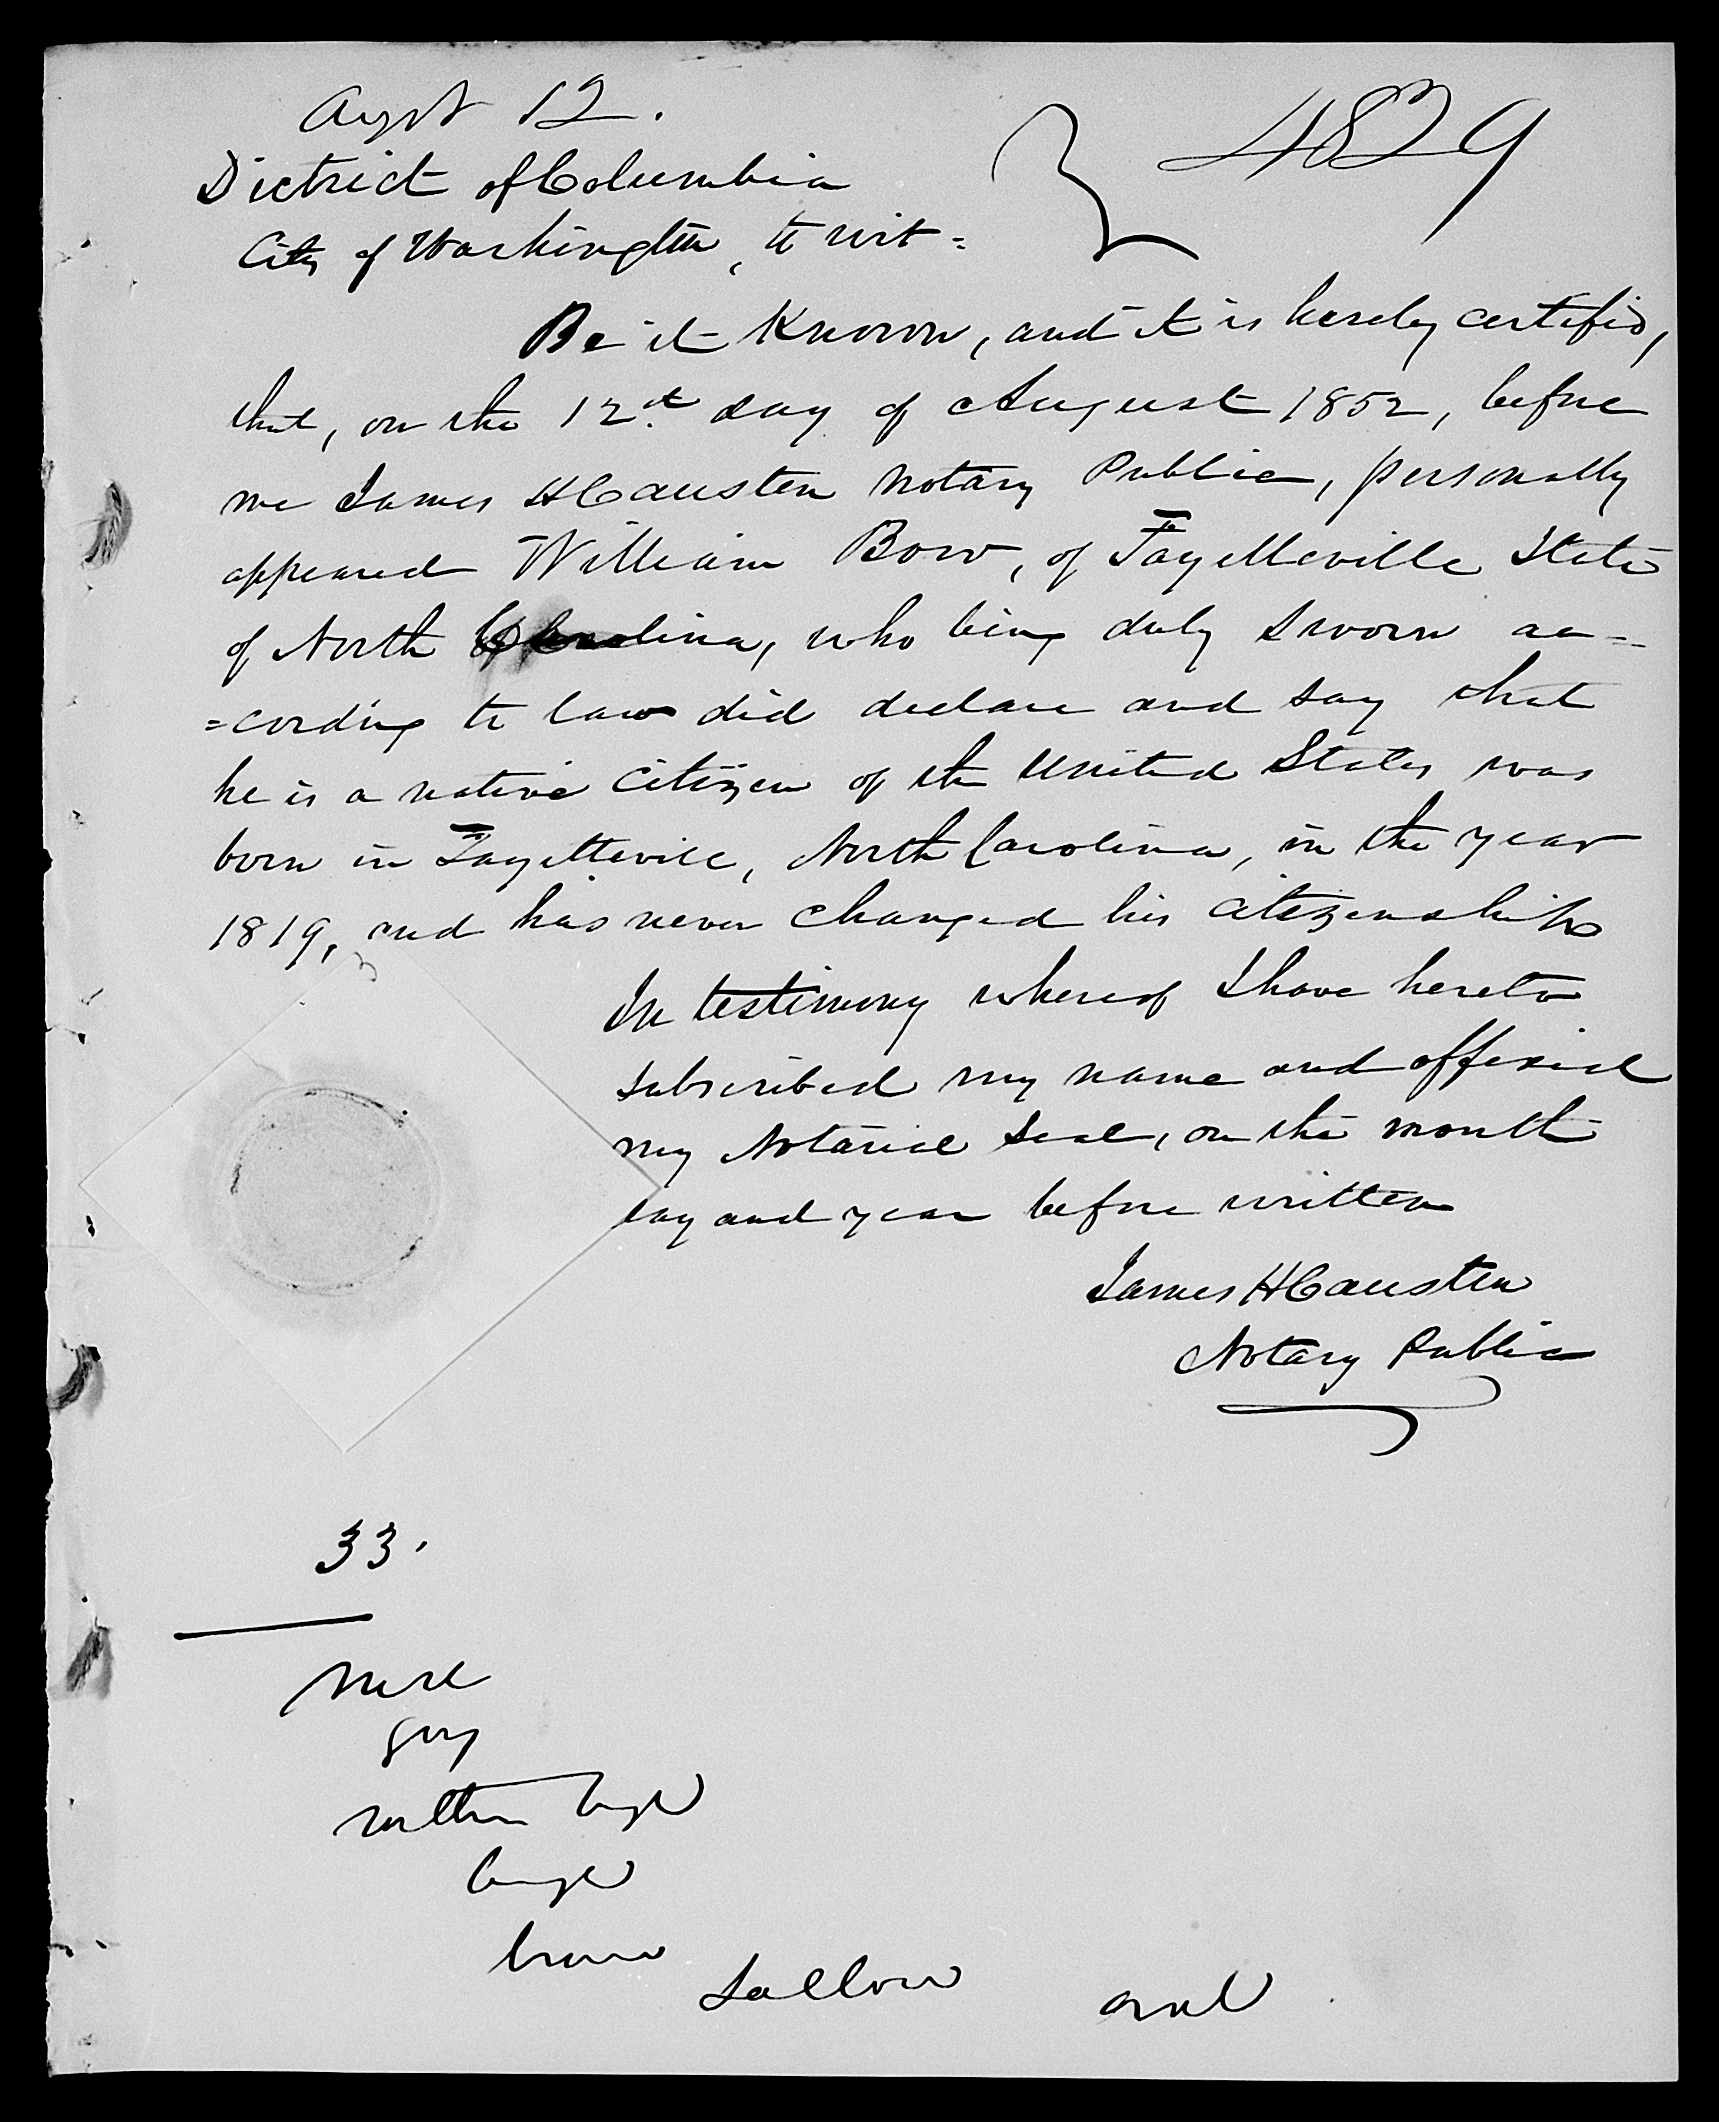 Augst 12.
4829
District of Columbia
City of Washington, to wit =
Be it Known, and it is hereby certified,
that, on the 12th day of August 1852, before
me James H Causten Notary Public, personally
appeared William Bow, of Fayetteville State
of North Carolina, who being duly sworn ac=
=cording to law did declare and say that
he is a native citizen of the United States was
born in Fayetteville, North Carolina, in the year
1819, and has never changed his citizenship
In testimony whereof I have hereto
subscribed my name and affixed
my Notarial Seal, on the month
day and year before written
James H Causten
Notary Public
33.
grey
rather large
large
brown
Sallow
oval